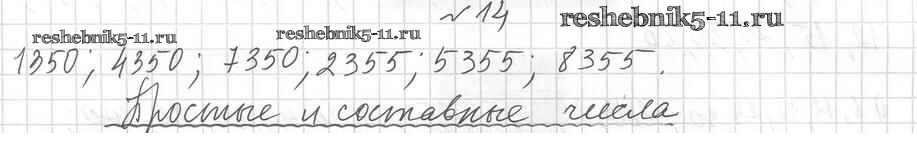 № 14
reshebnik5-11.ru
reshebnik5-11.ru reshebnik5-11.ru
1350; 4350; 7350; 2355; 5355; 8355.
Простые и составные числа